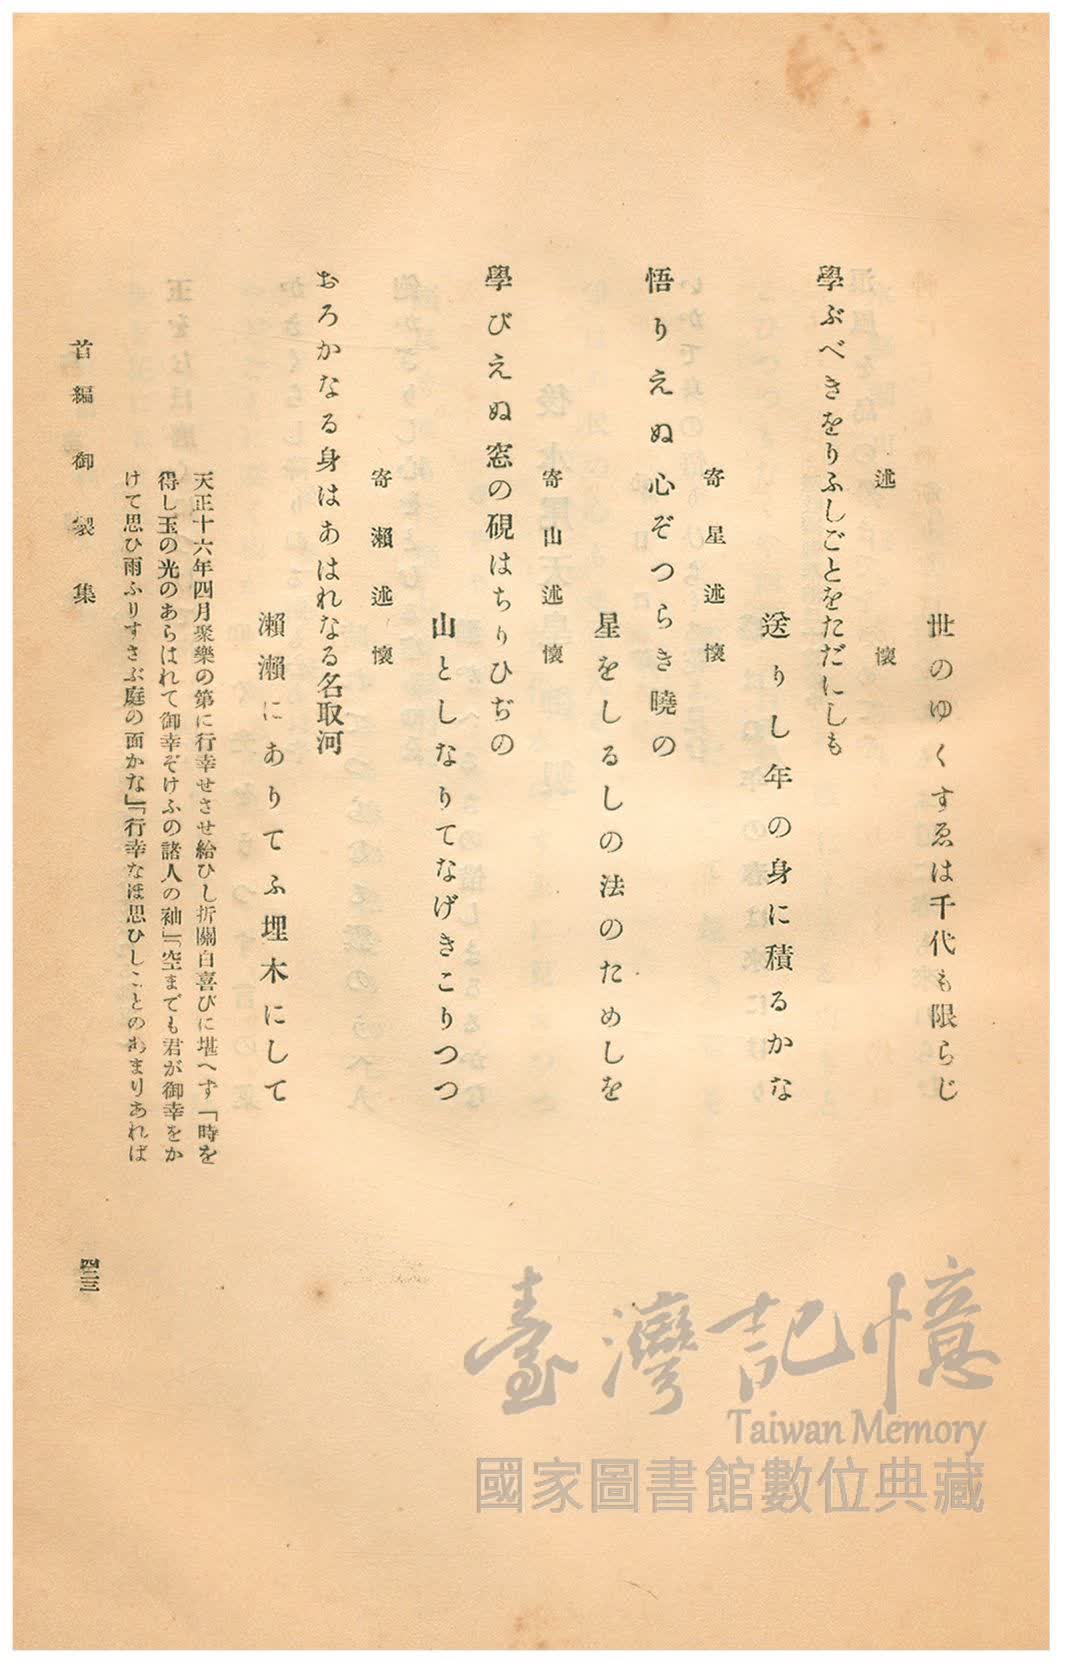 世のゆくすゑは千代も限らじ
述懷
學ぶべきをりふしごとをただにしも
送りし年の身に積るかな
寄星述懷
悟りえぬ心ぞつらき曉の
星をしるしの法のためしを
寄山述懷
學びえぬ窓の硯はちりひぢの
山としなりてなげきこりつつ
寄瀨述懷
おろかなる身はあはれなる名取河
瀨瀨にありてふ埋木にして
天正十六年四月聚樂の第に行幸せさせ給ひし折關白喜びに堪へず「時を
得し玉の光のあらはれて御幸ぞけふの諸人の袖」「空までも君が御幸をか
けて思ひ雨ふりすさぶ庭の面かな」「行幸なほ思ひしことのあまりあれば
首編御製集
四三三
臺灣記憶
Taiwan Memory
國家圖書館數位典藏